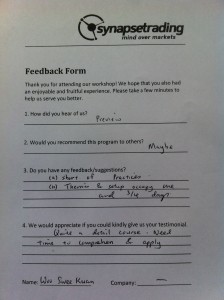 synapsetrading
mind over markets
Feedback Form
Thank you for attending our workshop! We hope that you also had
an enjoyable and fruitful experience. Please take a few minutes to
help us serve you better.
1. How did you hear of us?
Preview
2. Would you recommend this program to others?
Maybe
3. Do you have any feedback/suggestions?
(1) Short of Practical
(2) & setup occupy one
and 3/4 days
4. We would appreciate if you could kindly give us your testimonial.
Quite a detail course. Need
Time to comprehen & apply
Name: Wee Swee Kuan Company: —